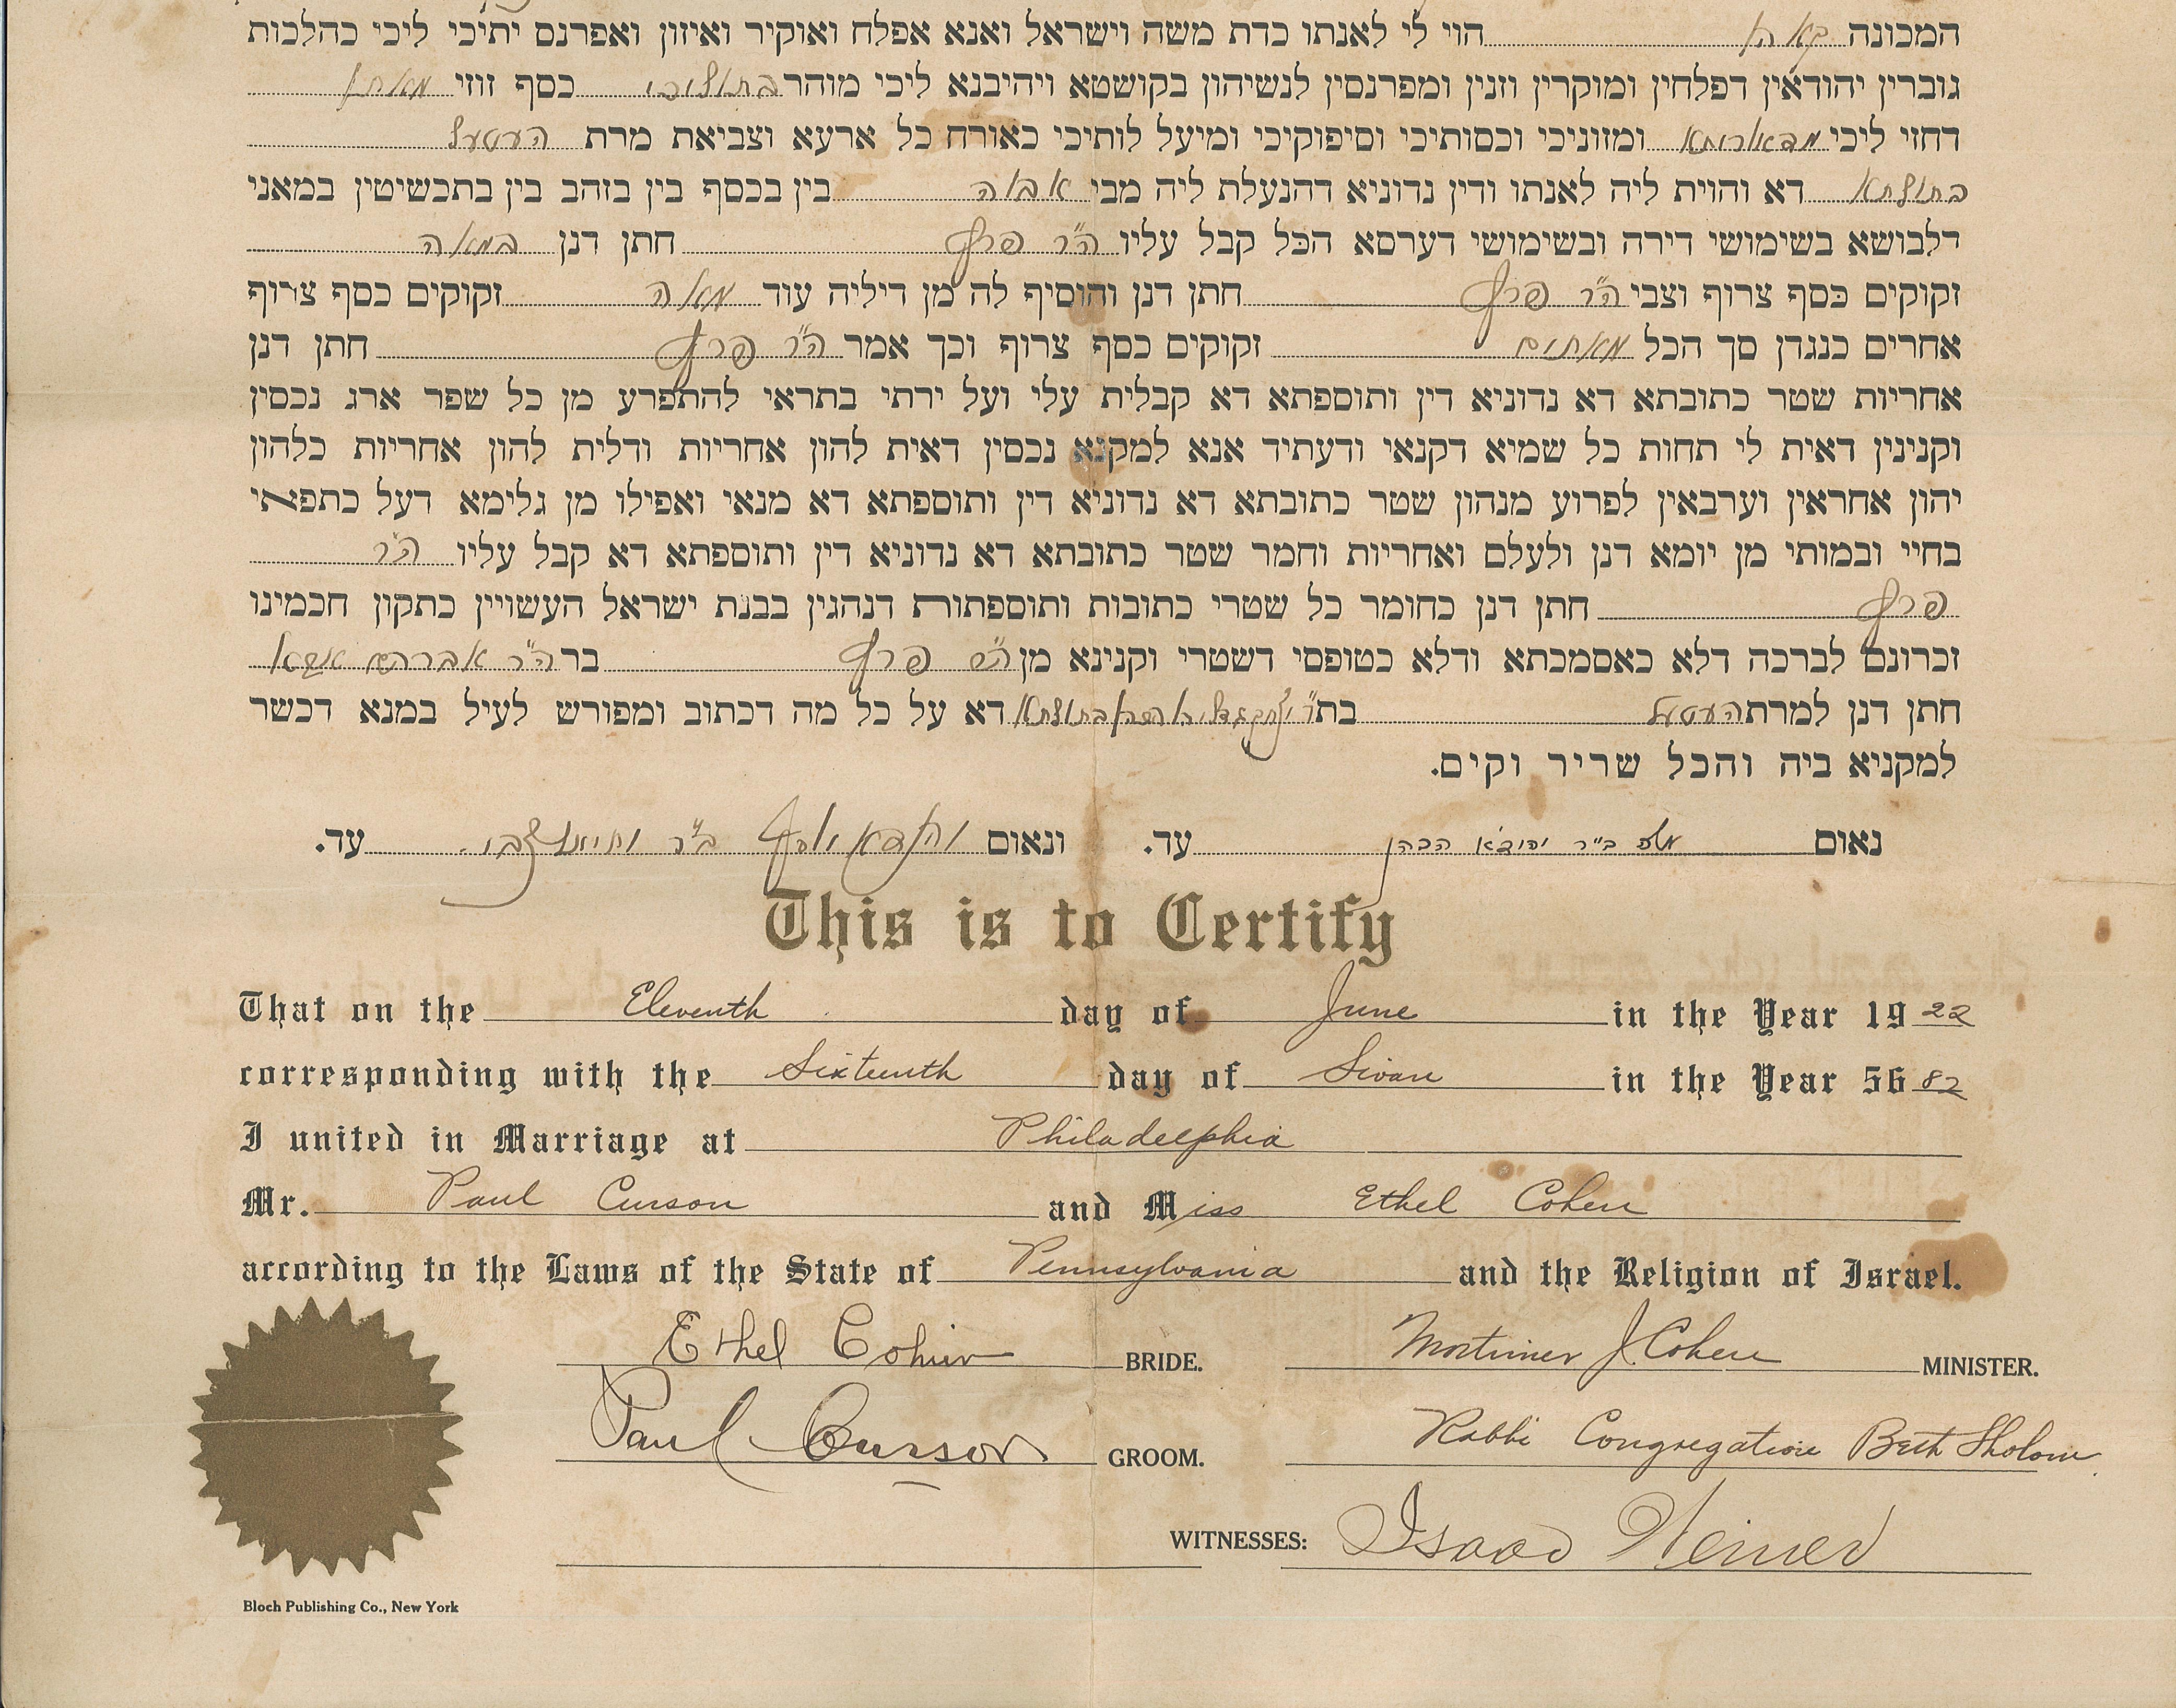 המכונה קאהן הוי לי לאנתו כדת משה וישראל ואנא אפלח ואוקיר ואיזון ואפרנס יתיכי ליכי כהלכות
גוברין יהודאין דפלחין ומוקרין וזנין ומפרנסין לנשיהון בקושטא ויהיבנא ליכי מוהר בתוליכי כסף זוזי מאתן
דחזי ליכי מדאורייתא ומזוניכי וכסותיכי וסיפוקיכי ומיעל לותיכי כאורח כל ארעא וצביאת מרת העטעל
בתולתא דא והוית ליה לאנתו ודין נדוניא דהנעלת ליה מבי אבוה בין בכסף בין בזהב בין בתכשיטין במאני
דלבושא בשימושי דירה ובשימושי דערסא הכל קבל עליו ה״ר פרץ חתן דנן במאה
זקוקים כסף צרוף וצבי ה״ר פרץ חתן דנן והוסיף לה מן דיליה עוד מאה זקוקים כסף צרוף
אחרים כנגדן סך הכל מאתים זקוקים כסף צרוף וכך אמר ה״ר פרץ חתן דנן
אחריות שטר כתובתא דא נדוניא דין ותוספתא דא קבלית עלי ועל ירתי בתראי להתפרע מן כל שפר ארג נכסין
וקנינין דאית לי תחות כל שמיא דקנאי ודעתיד אנא למקנא נכסין דאית להון אחריות ודלית להון אחריות כלהון
יהון אחראין וערבאין לפרוע מנהון שטר כתובתא דא נדוניא דין ותוספתא דא מנאי ואפילו מן גלימא דעל כתפאי
בחיי ובמותי מן יומא דנן ולעלם ואחריות וחמר שטר כתובתא דא נדוניא דין ותוספתא דא קבל עליו ה״ר
פרץ חתן דנן כחומר כל שטרי כתובות ותוספתות דנהגין בבנת ישראל העשויין כתקון חכמינו
זכרונם לברכה דלא כאסמכתא ודלא כטופסי דשטרי וקנינא מן פרץ בר ה״ר אברהם
חתן דנן למרת העטעל בת ר׳ יצחק הכהן בתולתא דא על כל מה דכתוב ומפורש לעיל במנא דכשר
למקניא ביה והכל שריר וקים.
נאום משה ב״ר יהודא הכהן עד. ונאום ב״ר עד.
This is to Certify
That on the Eleventh day of June in the Year 1922
corresponding with the Sixteenth day of Sivan in the Year 5682
I united in Marriage at Philadelphia
Mr. Paul Curson and Miss Ethel Cohen
according to the Laws of the State of Pennsylvania and the Religion of Israel.
Ethel Cohen BRIDE. Mortimer J. Cohen MINISTER.
Paul Curson GROOM. Rabbi Congregation Beth Sholom
WITNESSES: Isaac Weiner
Bloch Publishing Co., New York